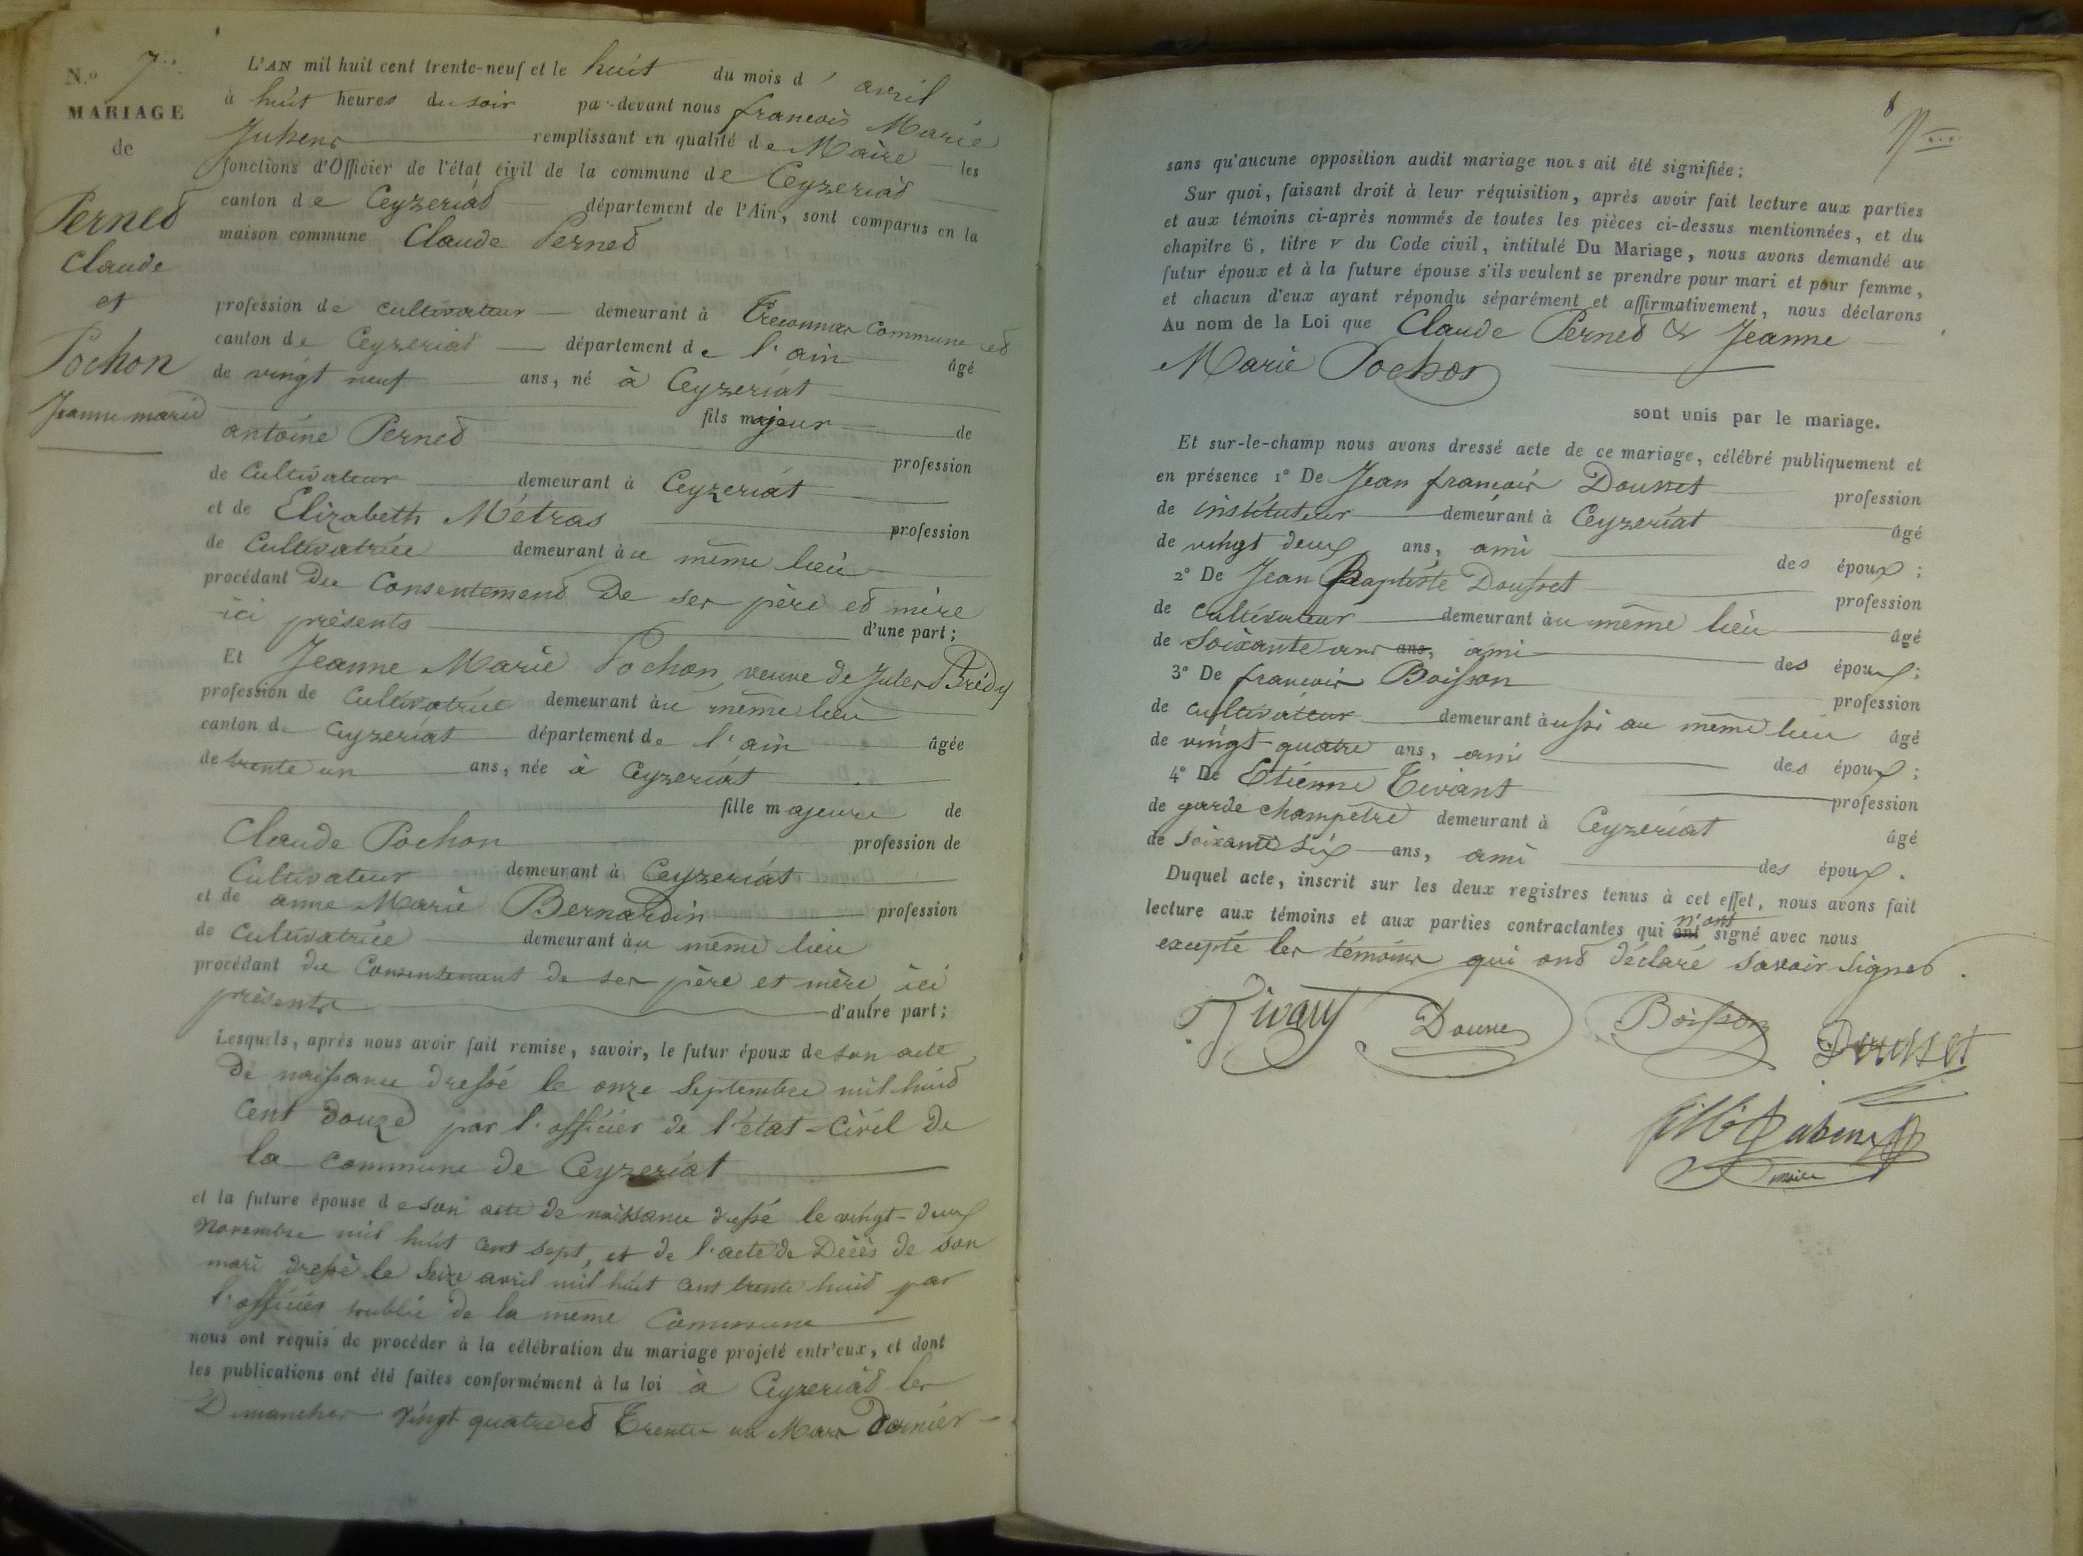 N.º 7
MARIAGE
de
Perned
Claude
et
Pochon
Jeanne marie
L'AN mil huit cent trente-neuf et le huit du mois d' avril
à huit heures du soir par-devant nous francois Marie
remplissant en qualité de Maire les
fonctions d'Officier de l'état civil de la commune de Ceyzeriad
canton de Ceyzeriad département de l'Ain, sont comparus en la
maison commune Claude Perned
profession de cultivateur demeurant à commune ed
canton de Ceyzeriad département de l'ain âgé
de vingt neuf ans, né à Ceyzeriat
fils majeur de
antoine Perned profession
de Cultivateur demeurant à Ceyzeriat
et de Elizabeth Métras profession
de Cultivatrice demeurant au même lieu
procédant du Consentemend De ser père ed mère
ici présents d'une part;
Et Jeanne Marie Pochon, veuve de Juler Brédy
profession de Cultivatrice demeurant au même lieu
canton de Ceyzeriat département de l'ain âgée
de trente un ans, née à Ceyzeriat
fille majeure de
Claude Pochon profession de
Cultivateur demeurant à Ceyzeriat
et de anne Marie Bernardin profession
de Cultivatrice demeurant au même lieu
procédant du Consentement de ser père et mère ici
présents d'autre part;
Lesquels, après nous avoir fait remise, savoir, le futur époux de son acte
De naissance dressé le onze Septembre mil huid
Cent douze par l'officier de l'état-Civil de
la commune de Ceyzeriat
et la future épouse de son acte de naissance dressé le vingt-deux
novembre mil huit cent sept, et de l'acte de Décès de son
mari dressé le Seize avril mil huit cent trente huid par
l'officier de la même Commune
nous ont requis de procéder à la célébration du mariage projeté entr'eux, et dont
les publications ont été faites conformément à la loi à Ceyzeriad ler
Dimancher vingt quatre ed Trente un Mars Dernier
sans qu'aucune opposition audit mariage nous ait été signifiée;
Sur quoi, faisant droit à leur réquisition, après avoir fait lecture aux parties
et aux témoins ci-après nommés de toutes les pièces ci-dessus mentionnées, et du
chapitre 6, titre v du Code civil, intitulé Du Mariage, nous avons demandé au
futur époux et à la future épouse s'ils veulent se prendre pour mari et pour femme,
et chacun d'eux ayant répondu séparément et affirmativement, nous déclarons
Au nom de la Loi que Claude Perned & Jeanne
Marie Pochon
sont unis par le mariage.
Et sur-le-champ nous avons dressé acte de ce mariage, célébré publiquement et
en présence 1º De Jean francois Dousset profession
de instituteur demeurant à Ceyzeriat âgé
de vingt deux ans, ami des époux;
2º De Jean Baptiste Dousset profession
de cultivateur demeurant au même lieu âgé
de Soixante ans ans, ami des époux;
3º De francois Boisson profession
de cultivateur demeurant aussi au même lieu âgé
de vingt-quatre ans, ami des époux;
4º De Etienne Tivant profession
de garde champêtre demeurant à Ceyzeriat âgé
de soixante six ans, ami des époux.
Duquel acte, inscrit sur les deux registres tenus à cet effet, nous avons fait
lecture aux témoins et aux parties contractantes qui ont n'ont signé avec nous
excepté ler témoins qui ond déclaré savoir signer.
Boisson Dousset
maire